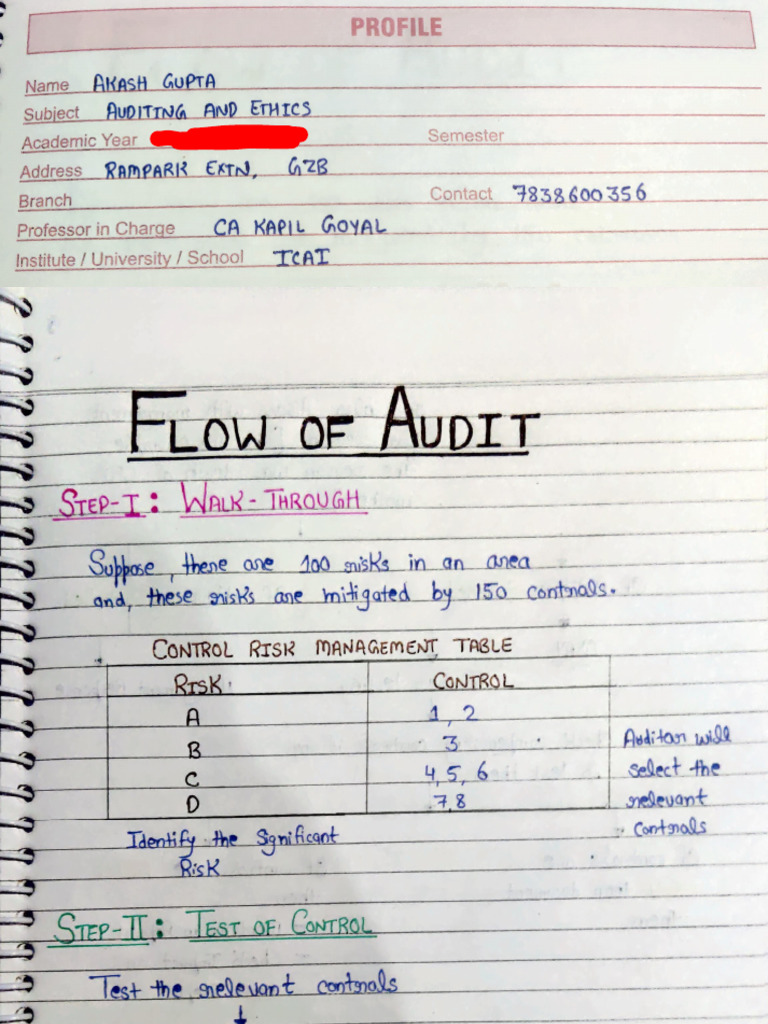 PROFILE
Name AKASH GUPTA
Subject AUDITING AND ETHICS
Academic Year Semester
Address RAMPARK EXTN, GZB
Branch Contact 7838600356
Professor in Charge CA KAPIL GOYAL
Institute / University / School ICAI
FLOW OF AUDIT
STEP-I: WALK-THROUGH
Suppose, there are 100 risks in an area
and, these risks are mitigated by 150 controls.
CONTROL RISK MANAGEMENT TABLE
RISK CONTROL
A 1, 2
B 3
C 4, 5, 6
D 7, 8
Auditor will
select the
relevant
controls
Identify the Significant
Risk
STEP-II: TEST OF CONTROL
Test the relevant controls
↓